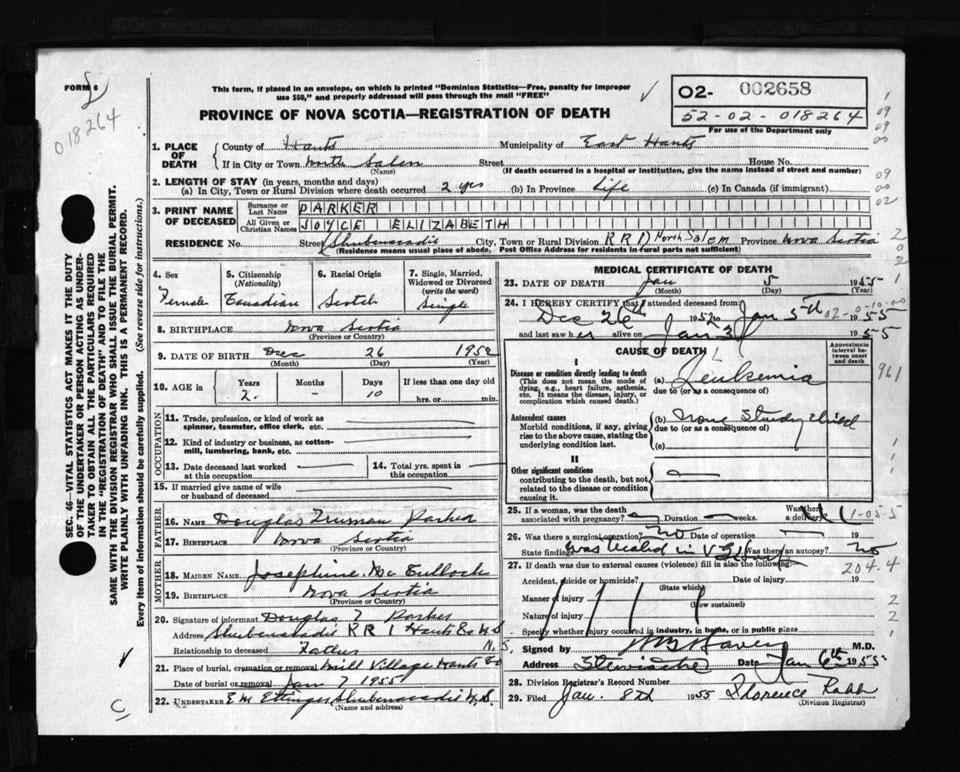 FORM 6
018264
This form, if placed in an envelope, on which is printed "Dominion Statistics—Free, penalty for improper
use $50," and properly addressed will pass through the mail "FREE"
PROVINCE OF NOVA SCOTIA—REGISTRATION OF DEATH
02- 002658
52-02-018264
For use of the Department only
SEC. 46—VITAL STATISTICS ACT MAKES IT THE DUTY
OF THE UNDERTAKER OR PERSON ACTING AS UNDER-
TAKER TO OBTAIN ALL THE PARTICULARS REQUIRED
IN THE "REGISTRATION OF DEATH" AND TO FILE THE
SAME WITH THE DIVISION REGISTRAR WHO SHALL ISSUE THE BURIAL PERMIT.
WRITE PLAINLY WITH UNFADING INK. THIS IS A PERMANENT RECORD.
Every item of information should be carefully supplied. (See reverse side for instructions.)
1. PLACE OF DEATH
County of Hants Municipality of East Hants
If in City or Town North Salem Street House No.
(Name) (If death occurred in a hospital or institution, give the name instead of street and number)
2. LENGTH OF STAY (in years, months and days)
(a) In City, Town or Rural Division where death occurred 2 yrs (b) In Province Life (c) In Canada (if immigrant)
3. PRINT NAME OF DECEASED
Surname or Last Name PARKER
All Given or Christian Names JOYCE ELIZABETH
RESIDENCE No. Street Shubenacadie City, Town or Rural Division R R 1) North Salem Province Nova Scotia
(Residence means usual place of abode. Post Office Address for residents in rural parts not sufficient)
4. Sex Female
5. Citizenship (Nationality) Canadian
6. Racial Origin Scotch
7. Single, Married, Widowed or Divorced (write the word) Single
8. BIRTHPLACE Nova Scotia
(Province or Country)
9. DATE OF BIRTH Dec 26 1952
(Month) (Day) (Year)
10. AGE in Years 2. Months – Days 10 If less than one day old hrs. or min.
OCCUPATION
11. Trade, profession, or kind of work as
spinner, teamster, office clerk, etc.
12. Kind of industry or business, as cotton-
mill, lumbering, bank, etc.
13. Date deceased last worked at this occupation
14. Total yrs. spent in this occupation
15. If married give name of wife
or husband of deceased
FATHER
16. NAME Douglas Truman Parker
17. BIRTHPLACE Nova Scotia
(Province or Country)
MOTHER
18. MAIDEN NAME Josephine Mc Culloch
19. BIRTHPLACE Nova Scotia
(Province or Country)
20. Signature of informant Douglas T Parker
Address Shubenacadie R R 1 Hants Co N S
Relationship to deceased Father N.S.
21. Place of burial, cremation or removal Mill Village Hants Co
Date of burial or removal Jan 7 1955
22. UNDERTAKER E M Ettinger Shubenacadie N.S.
(Name and address)
MEDICAL CERTIFICATE OF DEATH
23. DATE OF DEATH Jan 5 1955
(Month) (Day) (Year)
24. I HEREBY CERTIFY that I attended deceased from:
Dec 26th 1952 to Jan 5th 1955
and last saw her alive on Jan 3 1955
CAUSE OF DEATH
Approximate interval between onset and death
I
Disease or condition directly leading to death
(This does not mean the mode of
dying, e.g., heart failure, asthenia,
etc. It means the disease, injury, or
complication which caused death.)
(a) Leukemia
due to (or as a consequence of)
Antecedent causes
Morbid conditions, if any, giving
rise to the above cause, stating the
underlying condition last.
(b)
due to (or as a consequence of)
(c)
II
Other significant conditions
contributing to the death, but not
related to the disease or condition
causing it.
25. If a woman, was the death
associated with pregnancy? Duration weeks. Was there a delivery
26. Was there a surgical operation? no Date of operation 19
State findings Was there an autopsy? No
27. If death was due to external causes (violence) fill in also the following:
204.4
Accident, suicide or homicide? Date of injury 19
(State which)
Manner of injury
(How sustained)
Nature of injury
Specify whether injury occurred in industry, in home, or in public place
Signed by M.D.
Address Stewiacke Date Jan 6th 1955
28. Division Registrar's Record Number
29. Filed Jan. 8th 1955 Florence Robb
(Division Registrar)
961
C